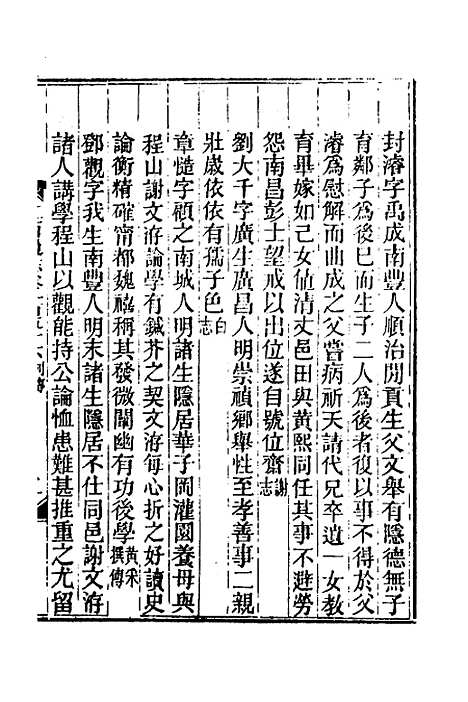 封濬字禹成南豐人順治閒貢生父文舉有隱德無子
育鄰子爲後巳而生子二人爲後者復以事不得於父
濬爲慰解而曲成之父嘗病祈天請代兄卒遺一女教
育畢嫁如己女値清丈邑田與黃熙同任其事不避勞
怨南昌彭士望戒以出位遂自號位齋謝志
劉大千字廣生廣昌人明崇禎鄉舉性至孝善事二親
壯歲依依有孺子色白志
章慥字顧之南城人明諸生隱居華子岡灌園養母與
程山謝文洊論學有鍼芥之契文洊每心折之好讀史
論衡精確甯都魏禧稱其發微闡幽有功後學黃采撰傳
鄧觀字我生南豐人明末諸生隱居不仕同邑謝文洊
諸人講學程山以觀能持公論恤患難甚推重之尤留